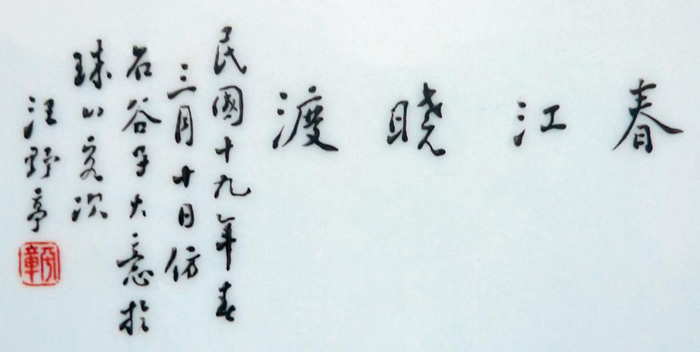 春江晓渡
民國十九年春
三月十日仿
石谷子大意於
珠山客次
汪野亭